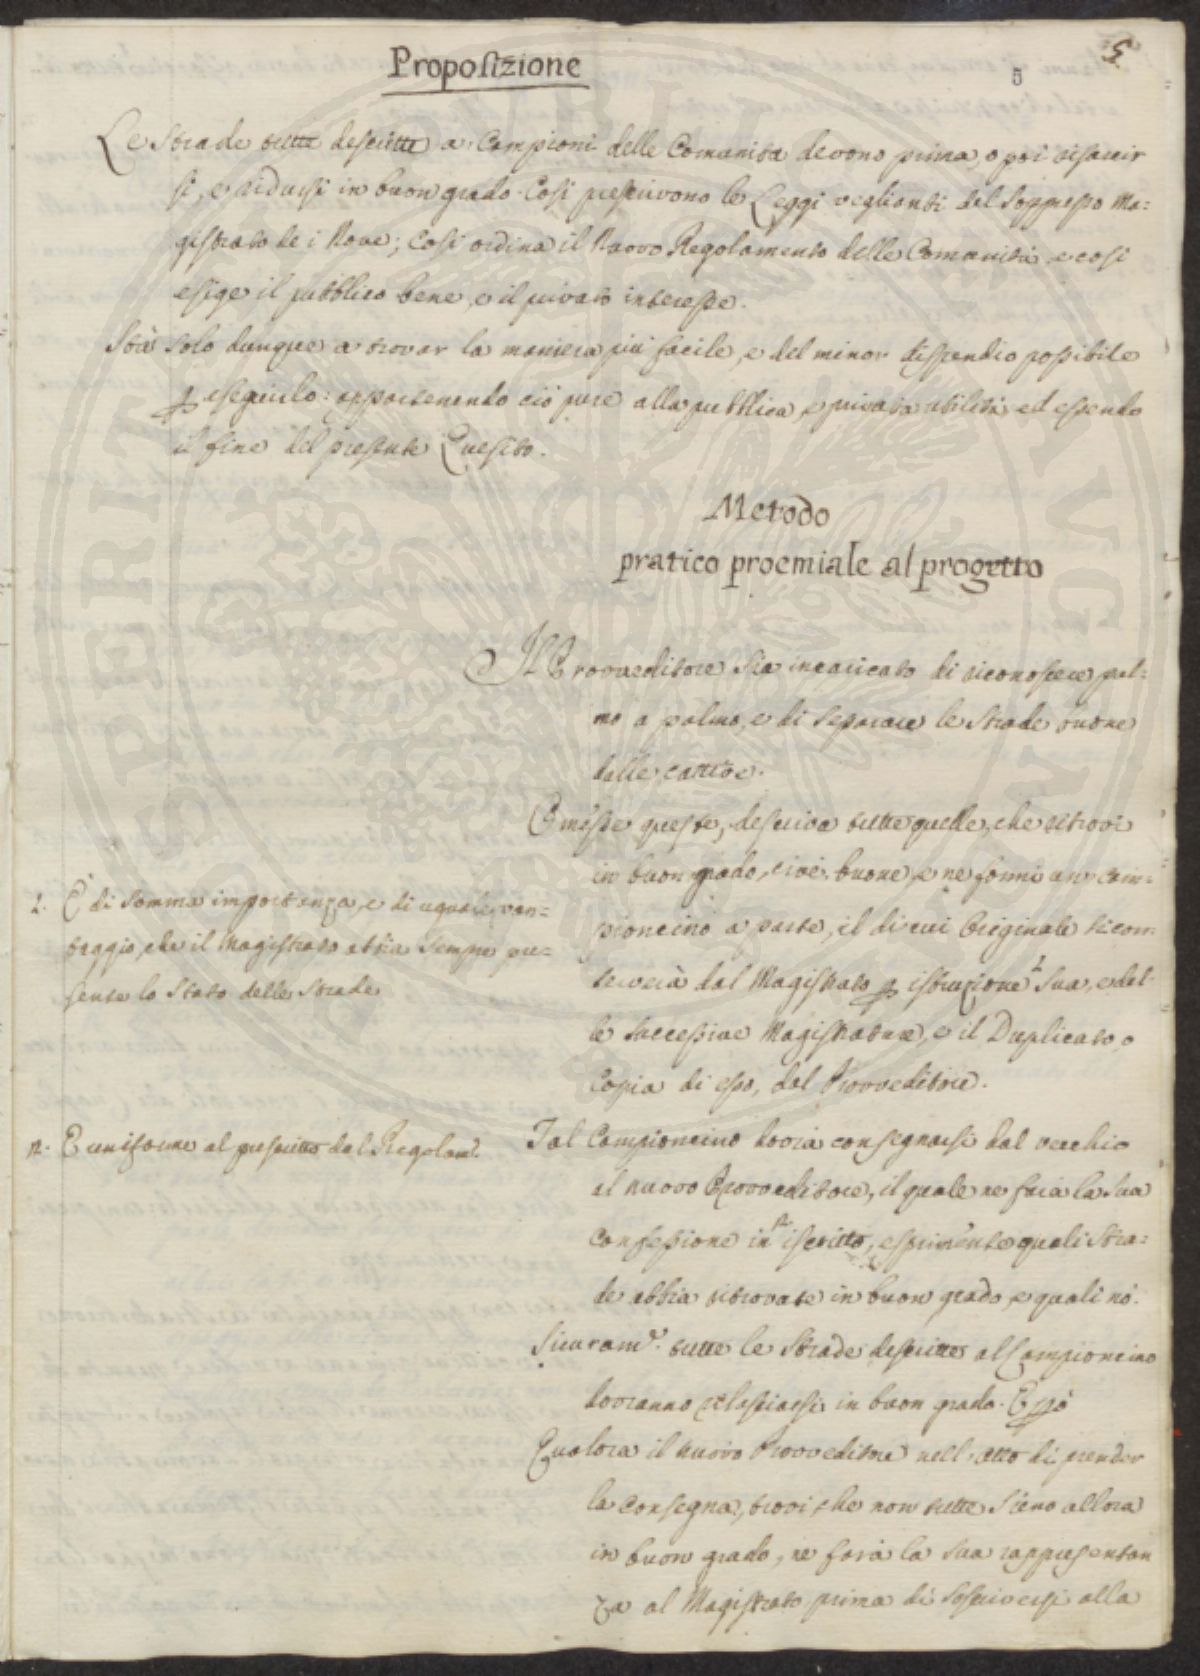 5
5
Proposizione
Le Strade tutte descritte a' Campioni delle Comunità devono prima, o poi risarcir
si, e ridursi in buon grado. Così prescrivono le Leggi veglianti del Soppresso Ma=
gistrato de i Nove; Così ordina il Nuovo Regolamento delle Comunità, e così
esige il pubblico bene, e il privato interesse.
Stà solo dunque a trovar la maniera più facile, e del minor dispendio possibile
p eseguirlo: appartenendo ciò pure alla pubblica, e privata utilità, ed essendo
il fine del presente Quesito.
Metodo
pratico proemiale al progetto
Il Provveditore sia incaricato di riconoscere pal=
mo a palmo, e di separare le Strade buone
dalle cattive.
Omesse queste, descriva tutte quelle, che ritrovi
in buon grado, cioè, buone, e ne formi un Cam=
pioncino a parte, il di cui Originale si con=
serverà dal Magistrato p istruzione 1 sua, e del=
le successive Magistrature, e il Duplicato, o
Copia di esso, dal Provveditore.
1. È di somma importanza, e di uguale van=
taggio, che il Magistrato abbia sempre pre=
sente lo Stato delle Strade
Tal Campioncino dovrà consegnarsi dal vecchio
al nuovo Provveditore, il quale ne farà la sua
Confessione in 2 iscritto, esprimente quali Stra=
de abbia ritrovate in buon grado, e quali nò.
2. È uniforme al prescritto dal Regolam.
Sicuram.e tutte le Strade descritte al Campioncino
dovranno rilasciarsi in buon grado. E però
Qualora il nuovo Provveditore nell'atto di prender
la Consegna, trovi, che non tutte sieno allora
in buon grado, ne farà la sua rappresentan
za al Magistrato prima di soscriversi alla